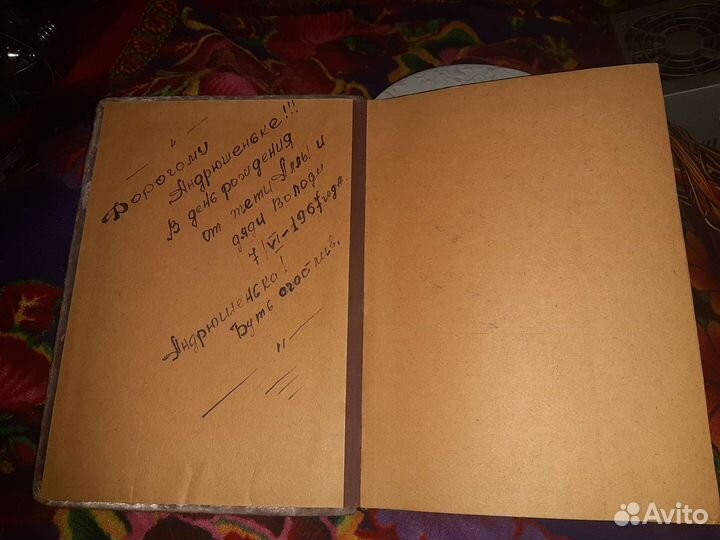 — " —
Дорогому
Андрюшеньке!!!
В день рождения
от тёти Аллы и
дяди Володи
7/VI-1967 года.
Андрюшенька!
Будь счастлив.
— " —
Avito